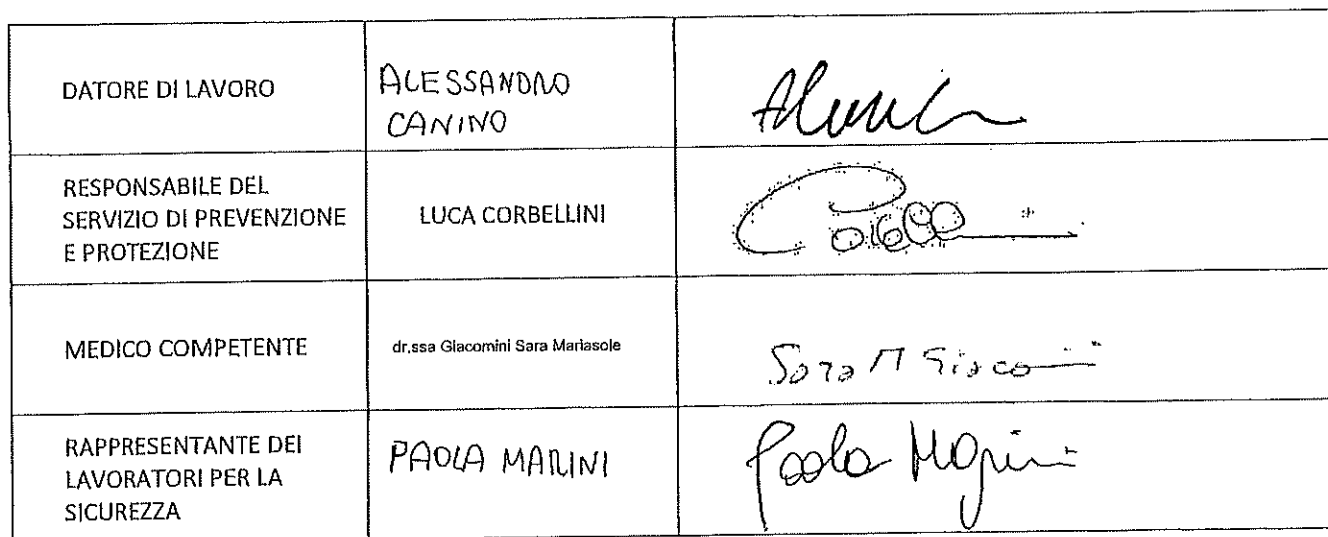 DATORE DI LAVORO
ALESSANDRO
CANINO
RESPONSABILE DEL
SERVIZIO DI PREVENZIONE
E PROTEZIONE
LUCA CORBELLINI
MEDICO COMPETENTE
dr.ssa Giacomini Sara Mariasole
Sara M Giacomini
RAPPRESENTANTE DEI
LAVORATORI PER LA
SICUREZZA
PAOLA MARINI
Paola Marini